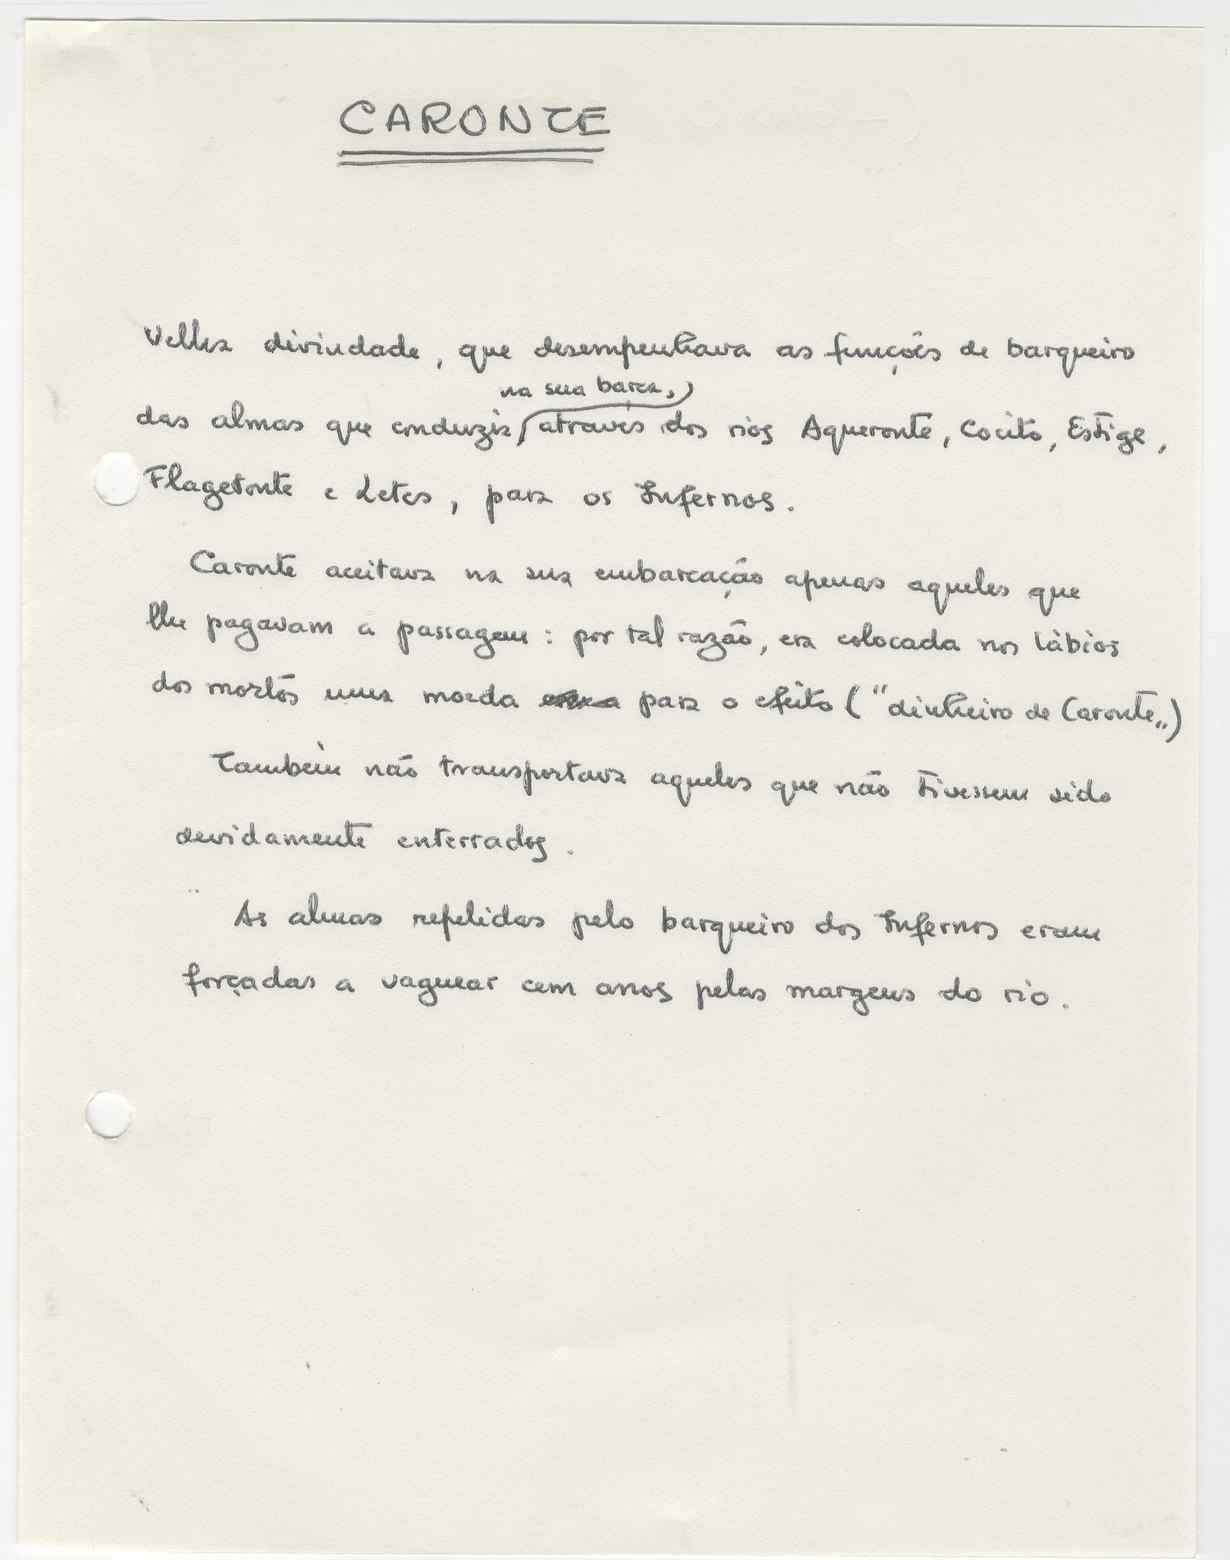 CARONTE
Velha divindade, que desempenhava as funções de barqueiro
na sua barca,
das almas que conduzia através dos rios Aqueronte, Cocito, Estige,
Flagetonte e Letes, para os Infernos.
Caronte aceitava na sua embarcação apenas aqueles que
lhe pagavam a passagem: por tal razão, era colocada nos lábios
dos mortos uma moeda para o efeito ("dinheiro de Caronte„)
Também não transportava aqueles que não tivessem sido
devidamente enterrados.
As almas repelidas pelo barqueiro dos Infernos eram
forçadas a vaguear cem anos pelas margens do rio.